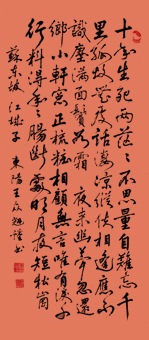 十年生死兩茫茫不思量自難忘千
里孤墳無處話淒涼縱使相逢應不
識塵滿面鬢如霜 夜來幽夢忽還
鄉小軒窗正梳妝相顧無言唯有淚千
行料得年年腸斷處明月夜短松崗
蘇東坡 江城子 東海王